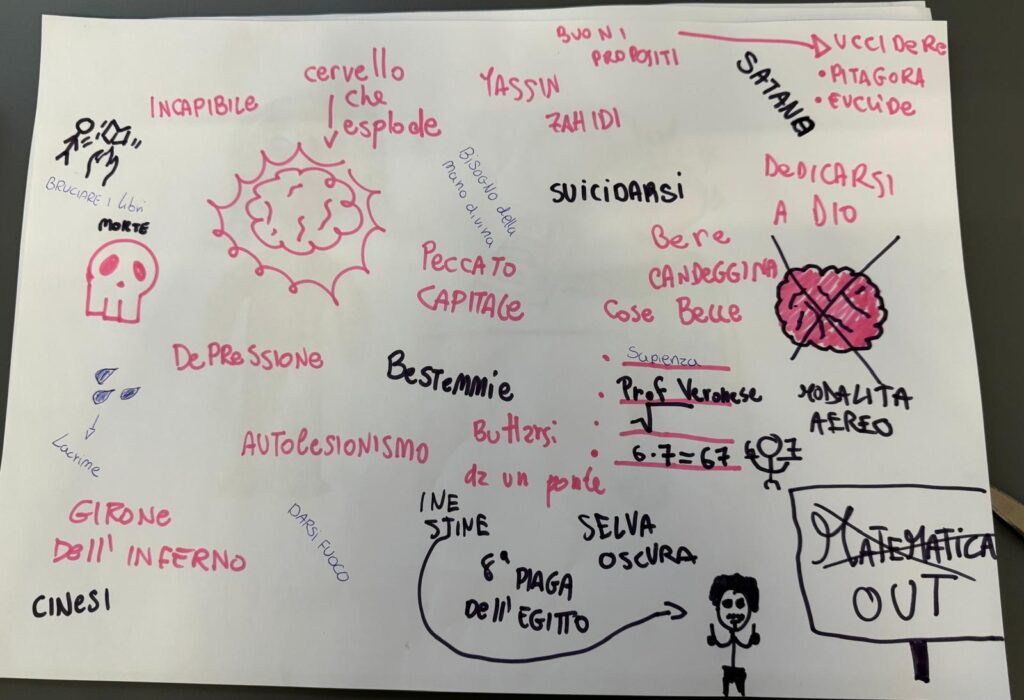 BUONI
PROPOSITI
UCCIDERE
• PITAGORA
• EUCLIDE
SATANA
cervello
che
esplode
INCAPIBILE
YASSIN
ZAHIDI
BRUCIARE i libri
BISOGNO della
mano divina
SUICIDARSI
DEDICARSI
A DIO
MORTE
PECCATO
CAPITALE
Bere
CANDEGGINA
Cose Belle
DEPRESSIONE
BESTEMMIE
• Sapienza
• Prof Veronese
• √
• 6·7=67
6 7
MODALITA
AEREO
Lacrime
AUTOLESIONISMO
Buttarsi
da un ponte
GIRONE
Dell' INFERNO
DARSI FUOCO
INE
STINE
SELVA
OSCURA
8ª PIAGA
Dell' EGITTO
CINESI
MATEMATICA
OUT